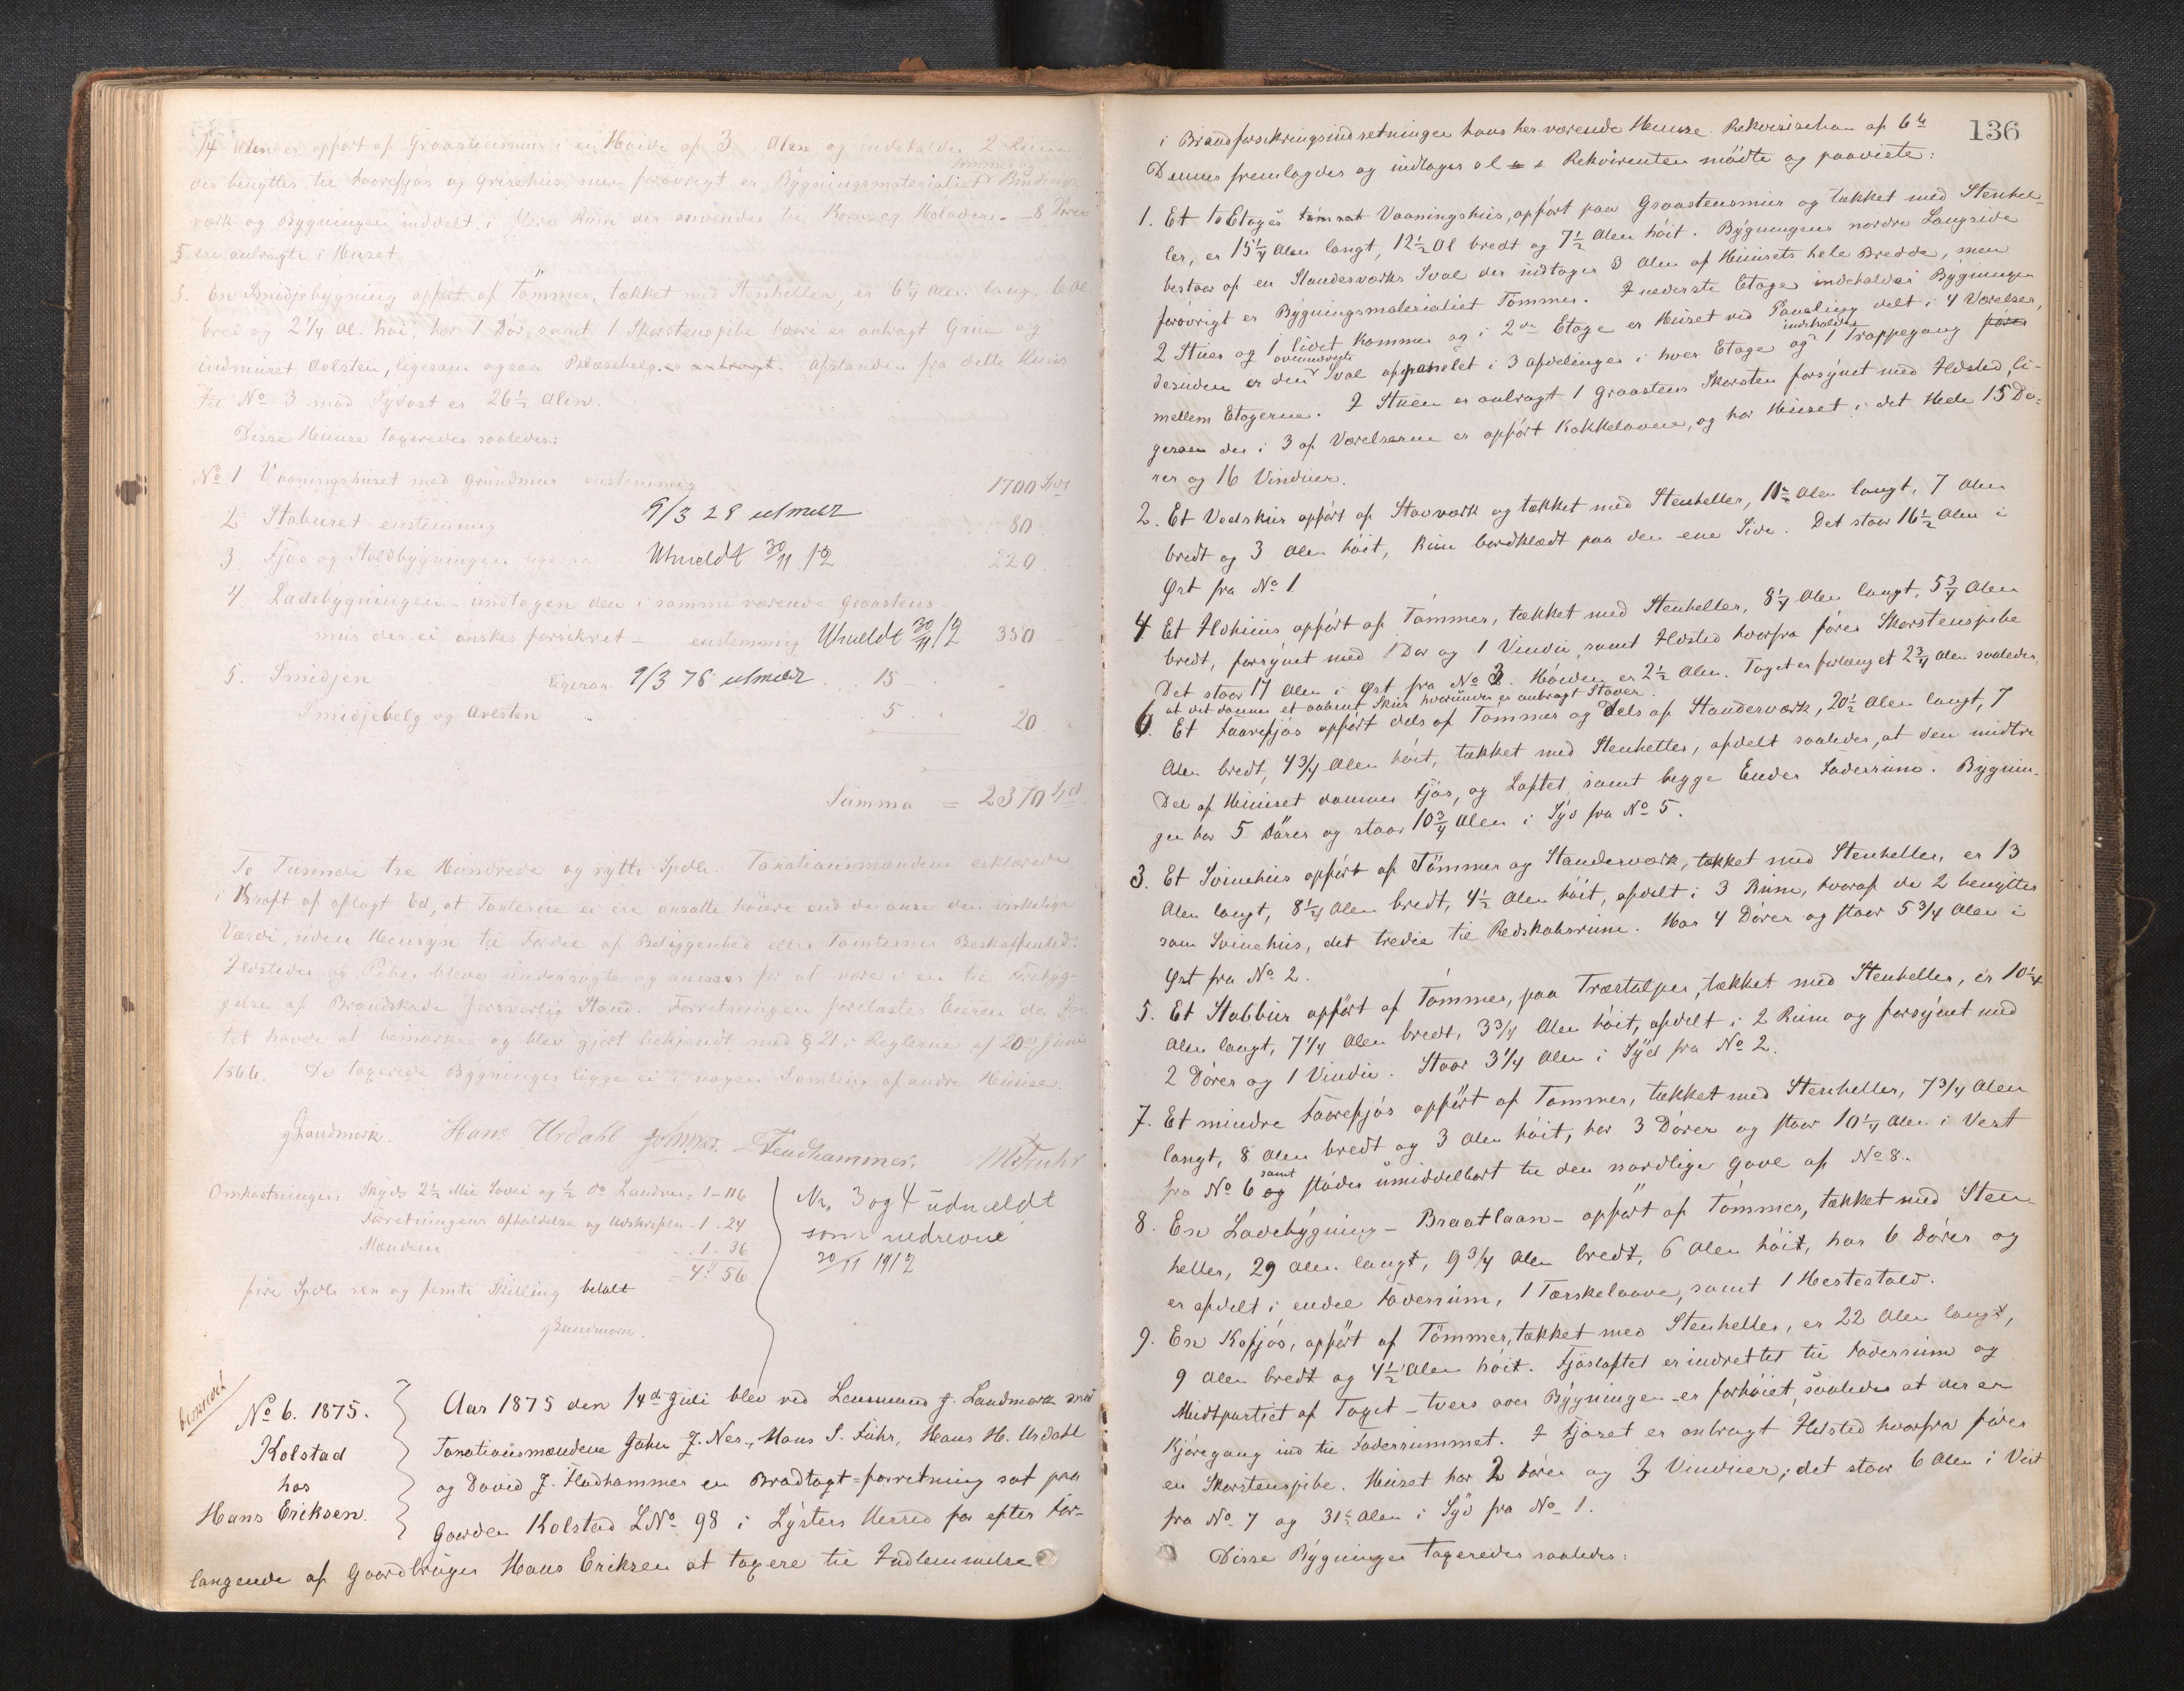 1/4 Alen er opført af Graasteensmur i en Høide af 3 Alen og indeholder 2 Rum
der benyttes til Faarefjøs og Grisehus, men forøvrigt er Bygningsmaterialiet Tømmer og Bindings-
værk og Bygningen inddelt i flere Rum der anvendes til Korn og Høladere. - 8 Døre
ere anbragte i Huset.
5. En Smidjebygning opført af Tømmer, tækket med Stenheller, er 6 1/4 Alen lang, 6 Al
bred og 2 1/4 Al. høi, har 1 Dør, samt 1 Skorstenspibe, hvori er anbragt Grue og
indmuret Avlsten, ligesom ogsaa Blæsebelg er anbragt. Afstanden fra dette Huus
til No 3 mod Sydost er 26 1/2 Alen.
Disse Huuse taxeredes saaledes:
No 1 Vaaningshuset med Grundmur enstemmig 1700 Spd
2. Staburet enstemmig 9/3 28 utmeldt 80
3. Fjøs og Staldbygningen ligesaa Utmeldt 30/11 12 220
4. Ladebygningen - undtagen den i samme værende Graasteens-
mur der ei ønskes forsikret - enstemmig Utmeldt 30/11 12 350
5. Smidjen ligesaa 9/3 78 utmeldt 15
Smidjebelg og Avlsten 5 20
Summa = 2370 Spd.
To Tusinde tre Hundrede og sytti Spdlr. Taxationsmændene erklærede
i Kraft af aflagt Ed, at Taxterne ei ere ansatte høiere end de anse den virkelige
Værdi, uden Hensyn til Fordel af Beliggenhed eller Tomternes Beskaffenhed.
Ildsteder og Piber bleve undersøgte og ansees for at være i en til Forebyg-
gelse af Brandskade forsvarlig Stand. Forretningen forelæstes Eieren der In-
tet havde at bemærke og blev gjort bekjendt med § 21 i Reglerne af 20de Juni
1866. De taxerede Bygninger ligge ei i nogen Samling af andre Huuse.
J. Landmark. Hans Urdahl John Nes. D Fladhammer. H S Fuhr
Omkostninger: Skyds 2 1/2 Mil Søvei og 1/2 do Landvei = 1-116
Forretningens Afholdelse og Udskrifter - 1. 24
Mændene 1. 36
4: 56
fire Spdlr sex og femti Skilling betalt
J Landmark.
Nr. 3 og 4 udmeldt
som nedrevne
30/11 1912
No 6. 1875.
Kolstad
hos
Hans Eriksen.
Aar 1875 den 14de Juli blev ved Lensmand J. Landmark med
Taxationsmændene John J. Nes, Hans S. Fuhr, Hans H. Urdahl
og David J. Fladhammer en Brandtaxt-forretning sat paa
Gaarden Kolstad L No 98 i Lysters Herred for efter For-
langende af Gaardbruger Hans Eriksen at taxere til Indlemmelse
136
i Brandforsikringsindretningen hans herværende Huuse. Rekvisition af 6te
Dennes fremlagdes og indtages s l Rekvirenten mødte og paaviste:
1. Et to Etages tømret Vaaningshus, opført paa Graasteensmur og tækket med Stenhel-
ler, er 15 1/4 Alen langt, 12 1/2 Al bredt og 7 1/2 Alen høit. Bygningens nordre Langside
bestaar af en Standerværks Sval der indtager 3 Alen af Husets hele Bredde, men
forøvrigt er Bygningsmaterialiet Tømmer. I nederste Etage indeholder Bygningen
2 Stuer og 1 lidet Kammer og i 2den Etage er Huset ved Paneling delt i 4 Værelser,
desuden er den ovennævnte Sval afpanelet i 3 Afdelinger i hver Etage og indeholder 1 Trappegang
mellem Etagerne. I Stuen er anbragt 1 Graasteens Skorsten forsynet med Ildsted, li-
gesom der i 3 af Værelserne er opført Kakkelovne, og har Huset i det Hele 15 Dø-
rer og 16 Vinduer.
2. Et Vedskur opført af Stavværk og tækket med Stenheller, 11 1/2 Alen langt, 7 Alen
bredt og 3 Alen høit, kun bordklædt paa den ene Side. Det staar 16 1/2 Alen i
Øst fra No 1.
4 Et Ildhuus opført af Tømmer, tækket med Stenheller, 8 1/4 Alen langt, 5 3/4 Alen
bredt, forsynet med 1 Dør og 1 Vindu, samt Ildsted hvorfra fører Skorstenspibe
Det staar 17 Alen i Øst fra No 3. Høiden er 2 1/2 Alen. Taget er forlænget 2 3/4 Alen saaledes,
at det danner et aabent Skur hvorunder er anbragt Staver.
6. Et Faarefjøs opført dels af Tømmer og dels af Standerværk, 20 1/2 Alen langt, 7
Alen bredt, 4 3/4 Alen høit, tækket med Stenheller, afdelt saaledes, at den midtre
Del af Huuset danner Fjøs, og Loftet samt begge Ender Foderrum. Bygnin-
gen har 5 Dører og staar 10 3/4 Alen i Syd fra No 5.
3. Et Svinehus opført af Tømmer og Standerværk, tækket med Stenheller, er 13
Alen langt, 8 1/4 Alen bredt, 4 1/2 Alen høit, afdelt i 3 Rum, hvoraf de 2 benyttes
som Svinehus, det tredie til Redskabsrum. Har 4 Dører og staar 5 3/4 Alen i
Øst fra No 2.
5. Et Stabbur opført af Tømmer, paa Træstolper, tækket med Stenheller, er 10 1/4
Alen langt, 7 1/4 Alen bredt, 3 3/4 Alen høit, afdelt i 2 Rum og forsynet med
2 Dører og 1 Vindu. Staar 3 1/4 Alen i Syd fra No 2.
7. Et mindre Faarefjøs opført af Tømmer, tækket med Stenheller, 7 3/4 Alen
langt, 8 Alen bredt og 3 Alen høit, har 3 Dører og staar 10 1/4 Alen i Vest
fra No 6 samt støder umiddelbart til den nordlige Gavl af No 8.
8. En Ladebygning - Braatlaan - opført af Tømmer, tækket med Sten-
heller, 29 Alen langt, 9 3/4 Alen bredt, 6 Alen høit, har 6 Dører og
er afdelt i endel Foderrum, 1 Tærskelaave, samt 1 Hestestald.
9. En Kofjøs, opført af Tømmer, tækket med Stenheller, er 22 Alen langt,
9 Alen bredt og 4 1/2 Alen høit. Fjøsloftet er indrettet til Foderrum og
Midtpartiet af Taget - tvers over Bygningen - er forhøiet, saaledes at der er
Kjøregang ind til Foderrummet. I Fjøset er anbragt Ildsted hvorfra fører
en Skorstenspibe. Huset har 2 Dører og 3 Vinduer; det staar 6 Alen i Vest
fra No 7 og 31 1/2 Alen i Syd fra No 1.
Disse Bygninger taxeredes saaledes: